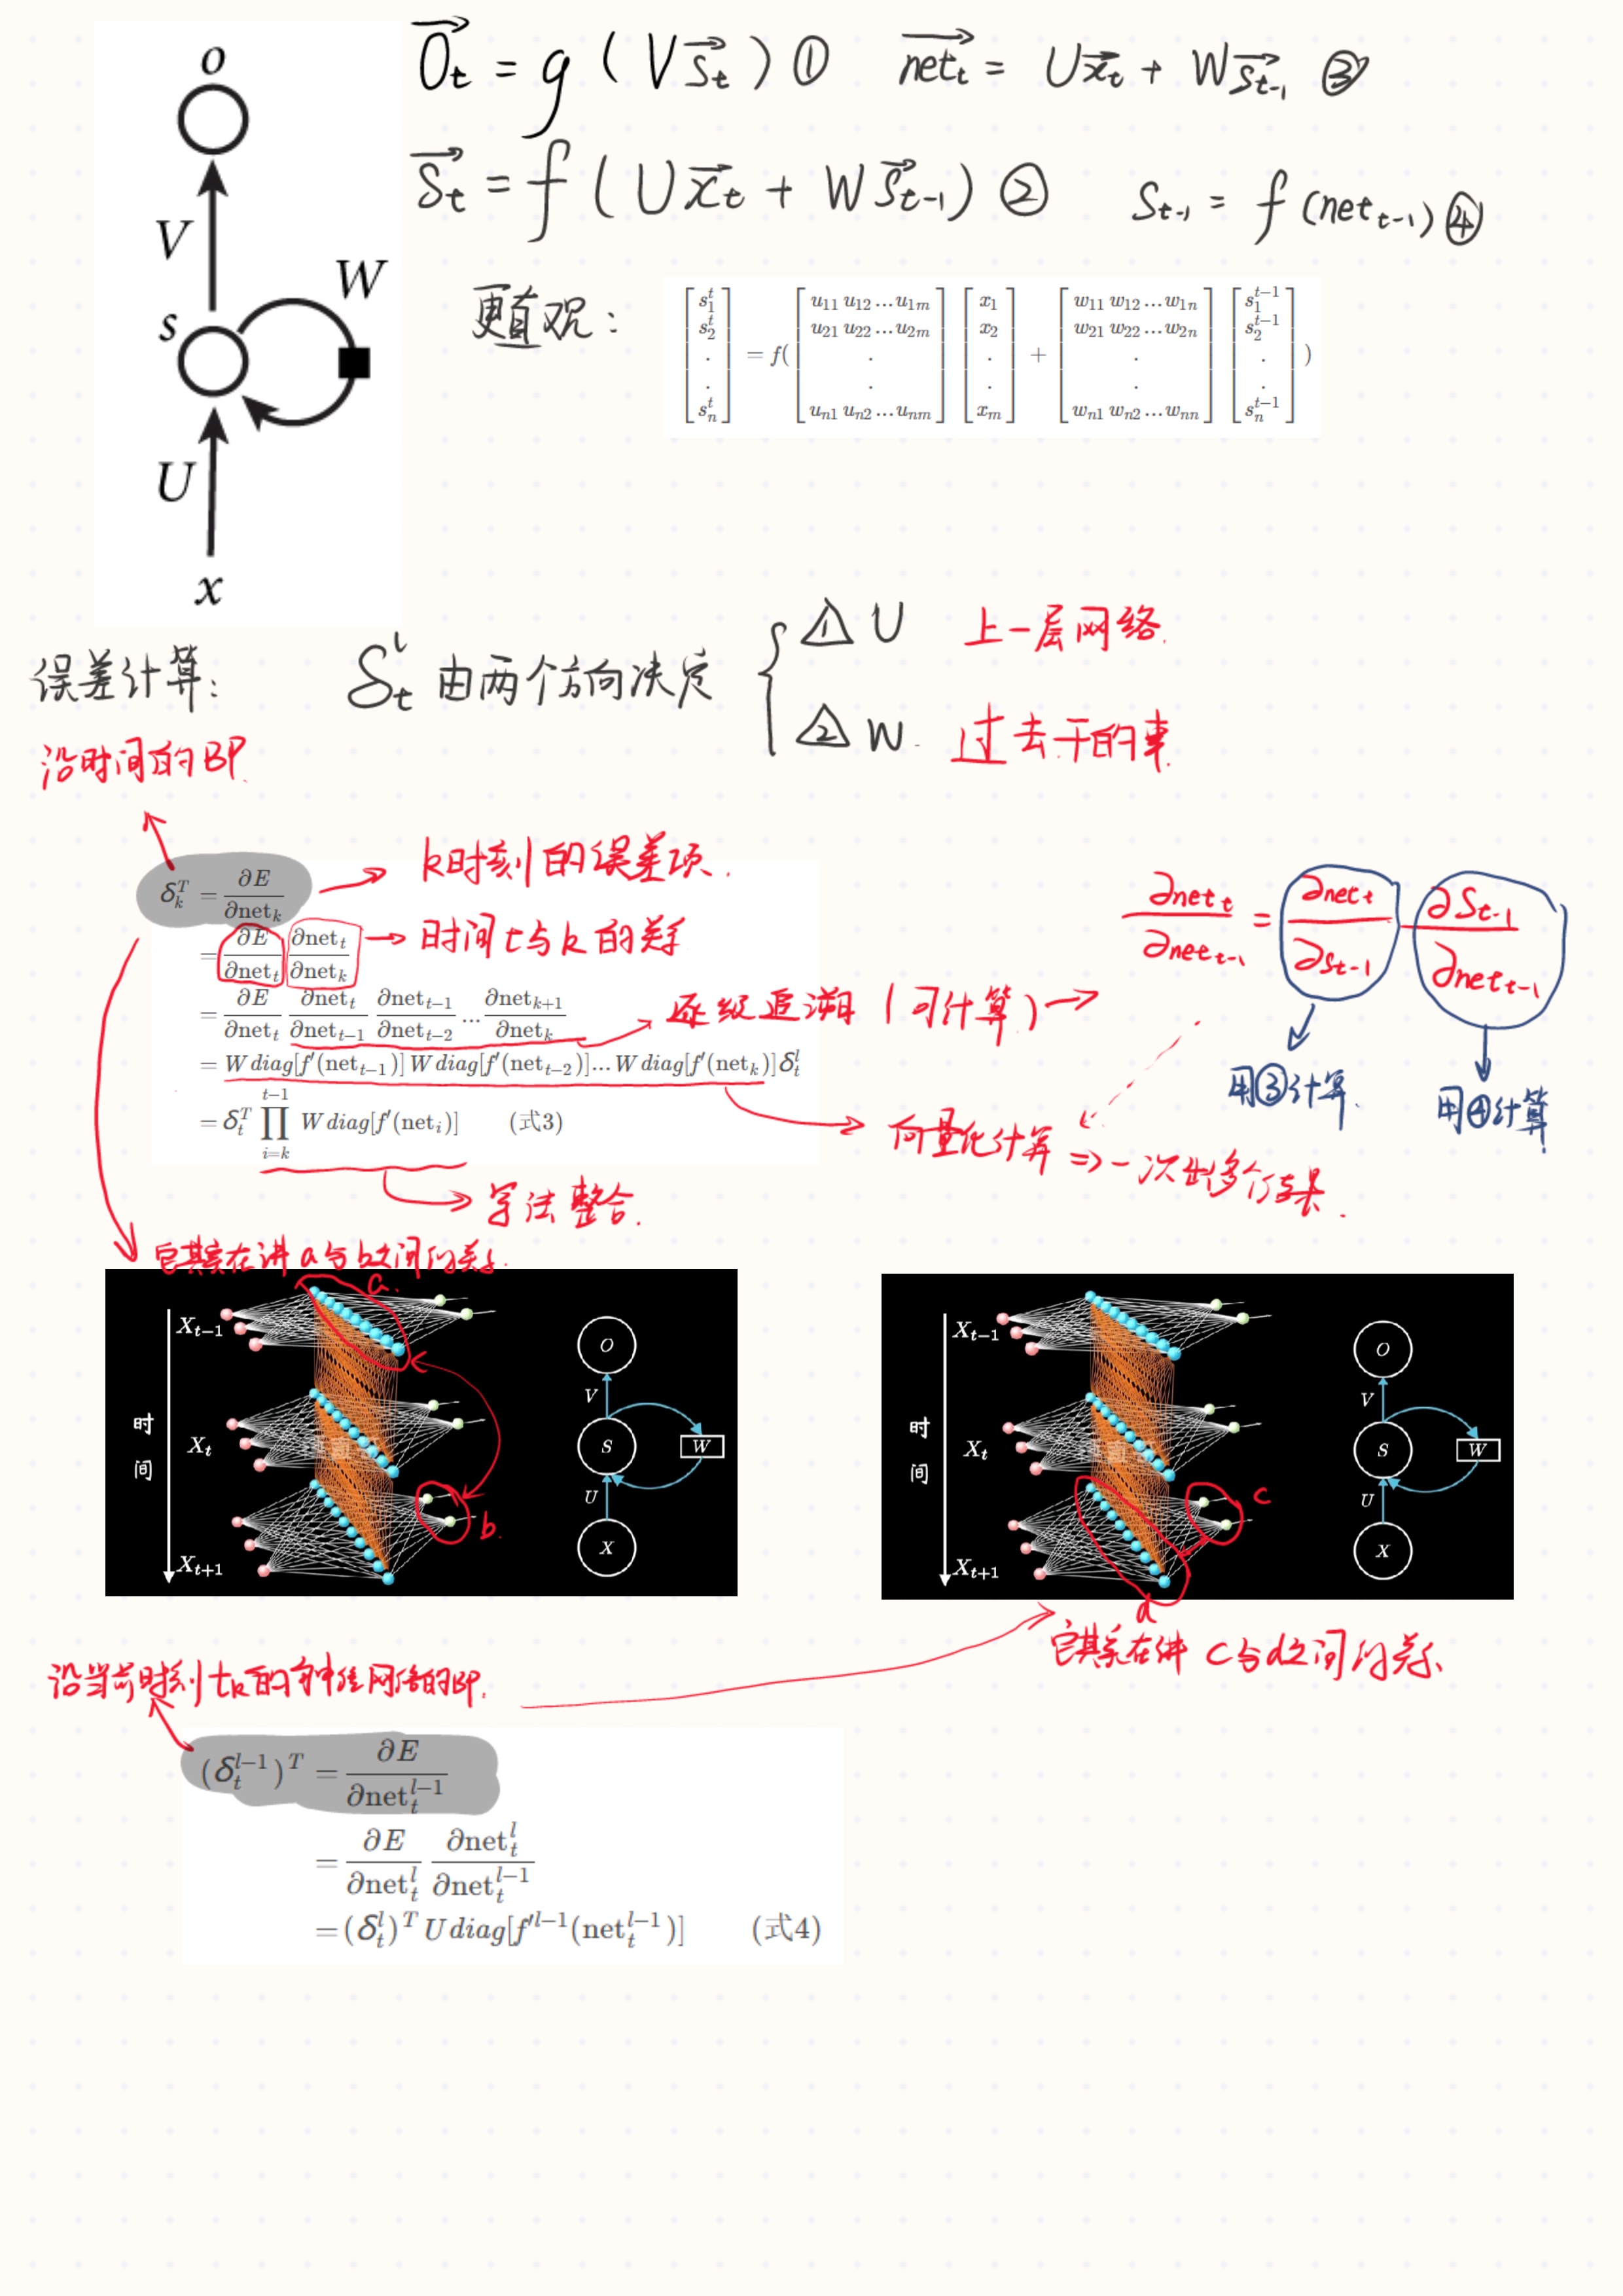 o
V
W
s
U
x
O_t = g ( V s_t ) ① net_t = U x_t + W s_{t-1} ③
s_t = f ( U x_t + W s_{t-1} ) ② s_{t-1} = f (net_{t-1}) ④
更直观:
[ s_1^t s_2^t . . s_n^t ] = f( [ u_11 u_12 … u_1m u_21 u_22 … u_2m . . u_n1 u_n2 … u_nm ] [ x_1 x_2 . . x_m ] + [ w_11 w_12 … w_1n w_21 w_22 … w_2n . . w_n1 w_n2 … w_nn ] [ s_1^{t-1} s_2^{t-1} . . s_n^{t-1} ] )
误差计算: δ_t^l 由两个方向决定
① U 上一层网络.
② W. 过去干的事.
沿时间的BP.
δ_k^T = ∂E / ∂net_k
k时刻的误差项.
= ∂E/∂net_t ∂net_t/∂net_k
时间t与k的关系
= ∂E/∂net_t ∂net_t/∂net_{t-1} ∂net_{t-1}/∂net_{t-2} … ∂net_{k+1}/∂net_k
逐级追溯 (可计算)
= W diag[f′(net_{t-1})] W diag[f′(net_{t-2})] … W diag[f′(net_k)] δ_t^l
= δ_t^T ∏_{i=k}^{t-1} W diag[f′(net_i)] (式3)
∂net_t/∂net_{t-1} = ∂net_t/∂s_{t-1} ∂s_{t-1}/∂net_{t-1}
用③计算.
用④计算.
向量化计算 ⇒ 一次出多个结果.
写法整合.
它其实在讲a与b之间的关系.
a.
X_{t-1}
时
间
X_t
X_{t+1}
b.
O
V
S
W
U
X
X_{t-1}
时
间
X_t
X_{t+1}
c
d
O
V
S
W
U
X
它其实在讲 c与d之间的关系.
沿当前时刻tk的神经网络的BP.
(δ_t^{l-1})^T = ∂E / ∂net_t^{l-1}
= ∂E/∂net_t^l ∂net_t^l/∂net_t^{l-1}
= (δ_t^l)^T U diag[f′^{l-1}(net_t^{l-1})] (式4)